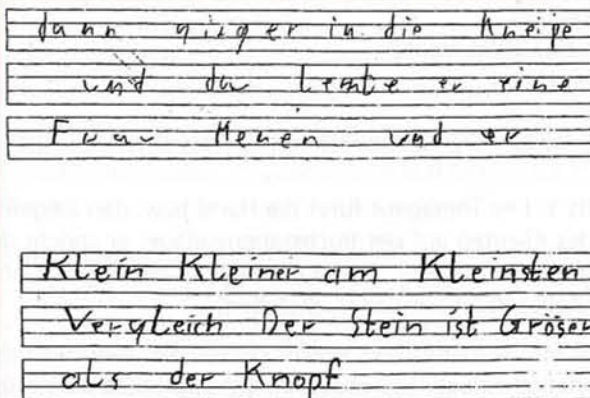 dann ginger in die Kneipe
und da lernte er eine
Frau Henen und er
Klein Kleiner am Kleinsten
Vergleich Der Stein ist Gröser
als der Knopf